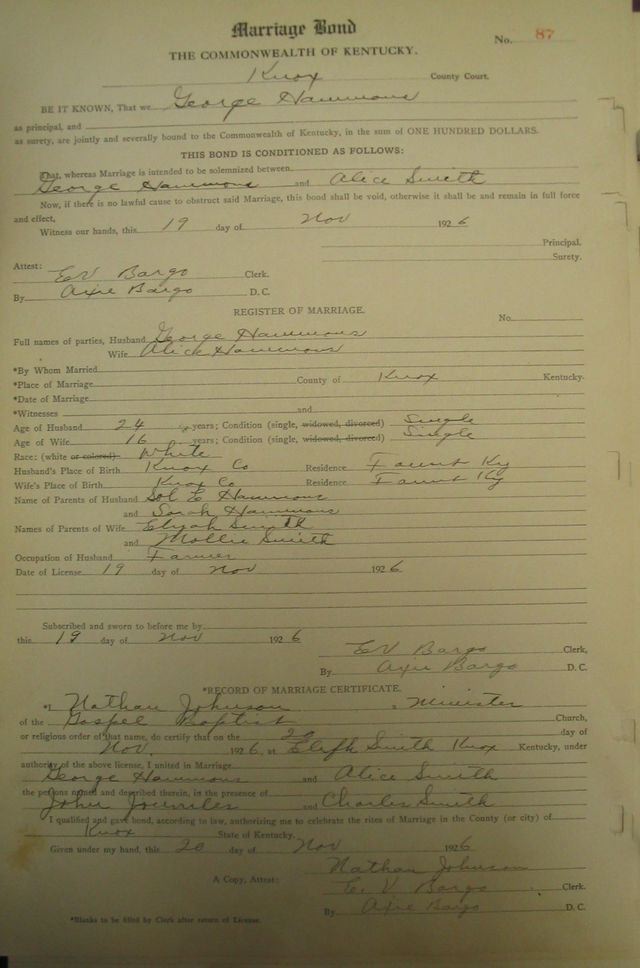 Marriage Bond
No. 87
THE COMMONWEALTH OF KENTUCKY.
Knox County Court.
BE IT KNOWN, That we George Hammons
as principal, and
as surety, are jointly and severally bound to the Commonwealth of Kentucky, in the sum of ONE HUNDRED DOLLARS.
THIS BOND IS CONDITIONED AS FOLLOWS:
That, whereas Marriage is intended to be solemnized between
George Hammons and Alice Smith
Now, if there is no lawful cause to obstruct said Marriage, this bond shall be void, otherwise it shall be and remain in full force
and effect,
Witness our hands, this 19 day of Nov 1926
Principal.
Surety.
Attest:
EV Bargo Clerk.
By Axie Bargo D. C.
REGISTER OF MARRIAGE.
No.
Full names of parties, Husband George Hammons
Wife Alice Hammons
*By Whom Married
*Place of Marriage County of Knox Kentucky.
*Date of Marriage
*Witnesses and
Age of Husband 24 years; Condition (single, widowed, divorced) Single
Age of Wife 16 years; Condition (single, widowed, divorced) Single
Race: (white or colored) White
Husband's Place of Birth Knox Co Residence Fount Ky
Wife's Place of Birth Knox Co Residence Fount Ky
Name of Parents of Husband Sol E Hammons
and Sarah Hammons
Names of Parents of Wife Elijah Smith
and Mollie Smith
Occupation of Husband Farmer
Date of License 19 day of Nov 1926
Subscribed and sworn to before me by
this 19 day of Nov 1926
EV Bargo Clerk,
By Axie Bargo D. C.
*RECORD OF MARRIAGE CERTIFICATE.
*I Nathan Johnson a Minister
of the Gospel Baptist Church,
or religious order of that name, do certify that on the 20 day of
Nov. 1926, at Smith Knox Kentucky, under
authority of the above license, I united in Marriage
George Hammons and Alice Smith
the persons named and described therein, in the presence of
John and Charles Smith
I qualified and gave bond, according to law, authorizing me to celebrate the rites of Marriage in the County (or city) of
Knox State of Kentucky.
Given under my hand, this 20 day of Nov 1926
Nathan Johnson
A Copy, Attest: E. V Bargo Clerk.
By Axie Bargo D. C.
*Blanks to be filled by Clerk after return of License.